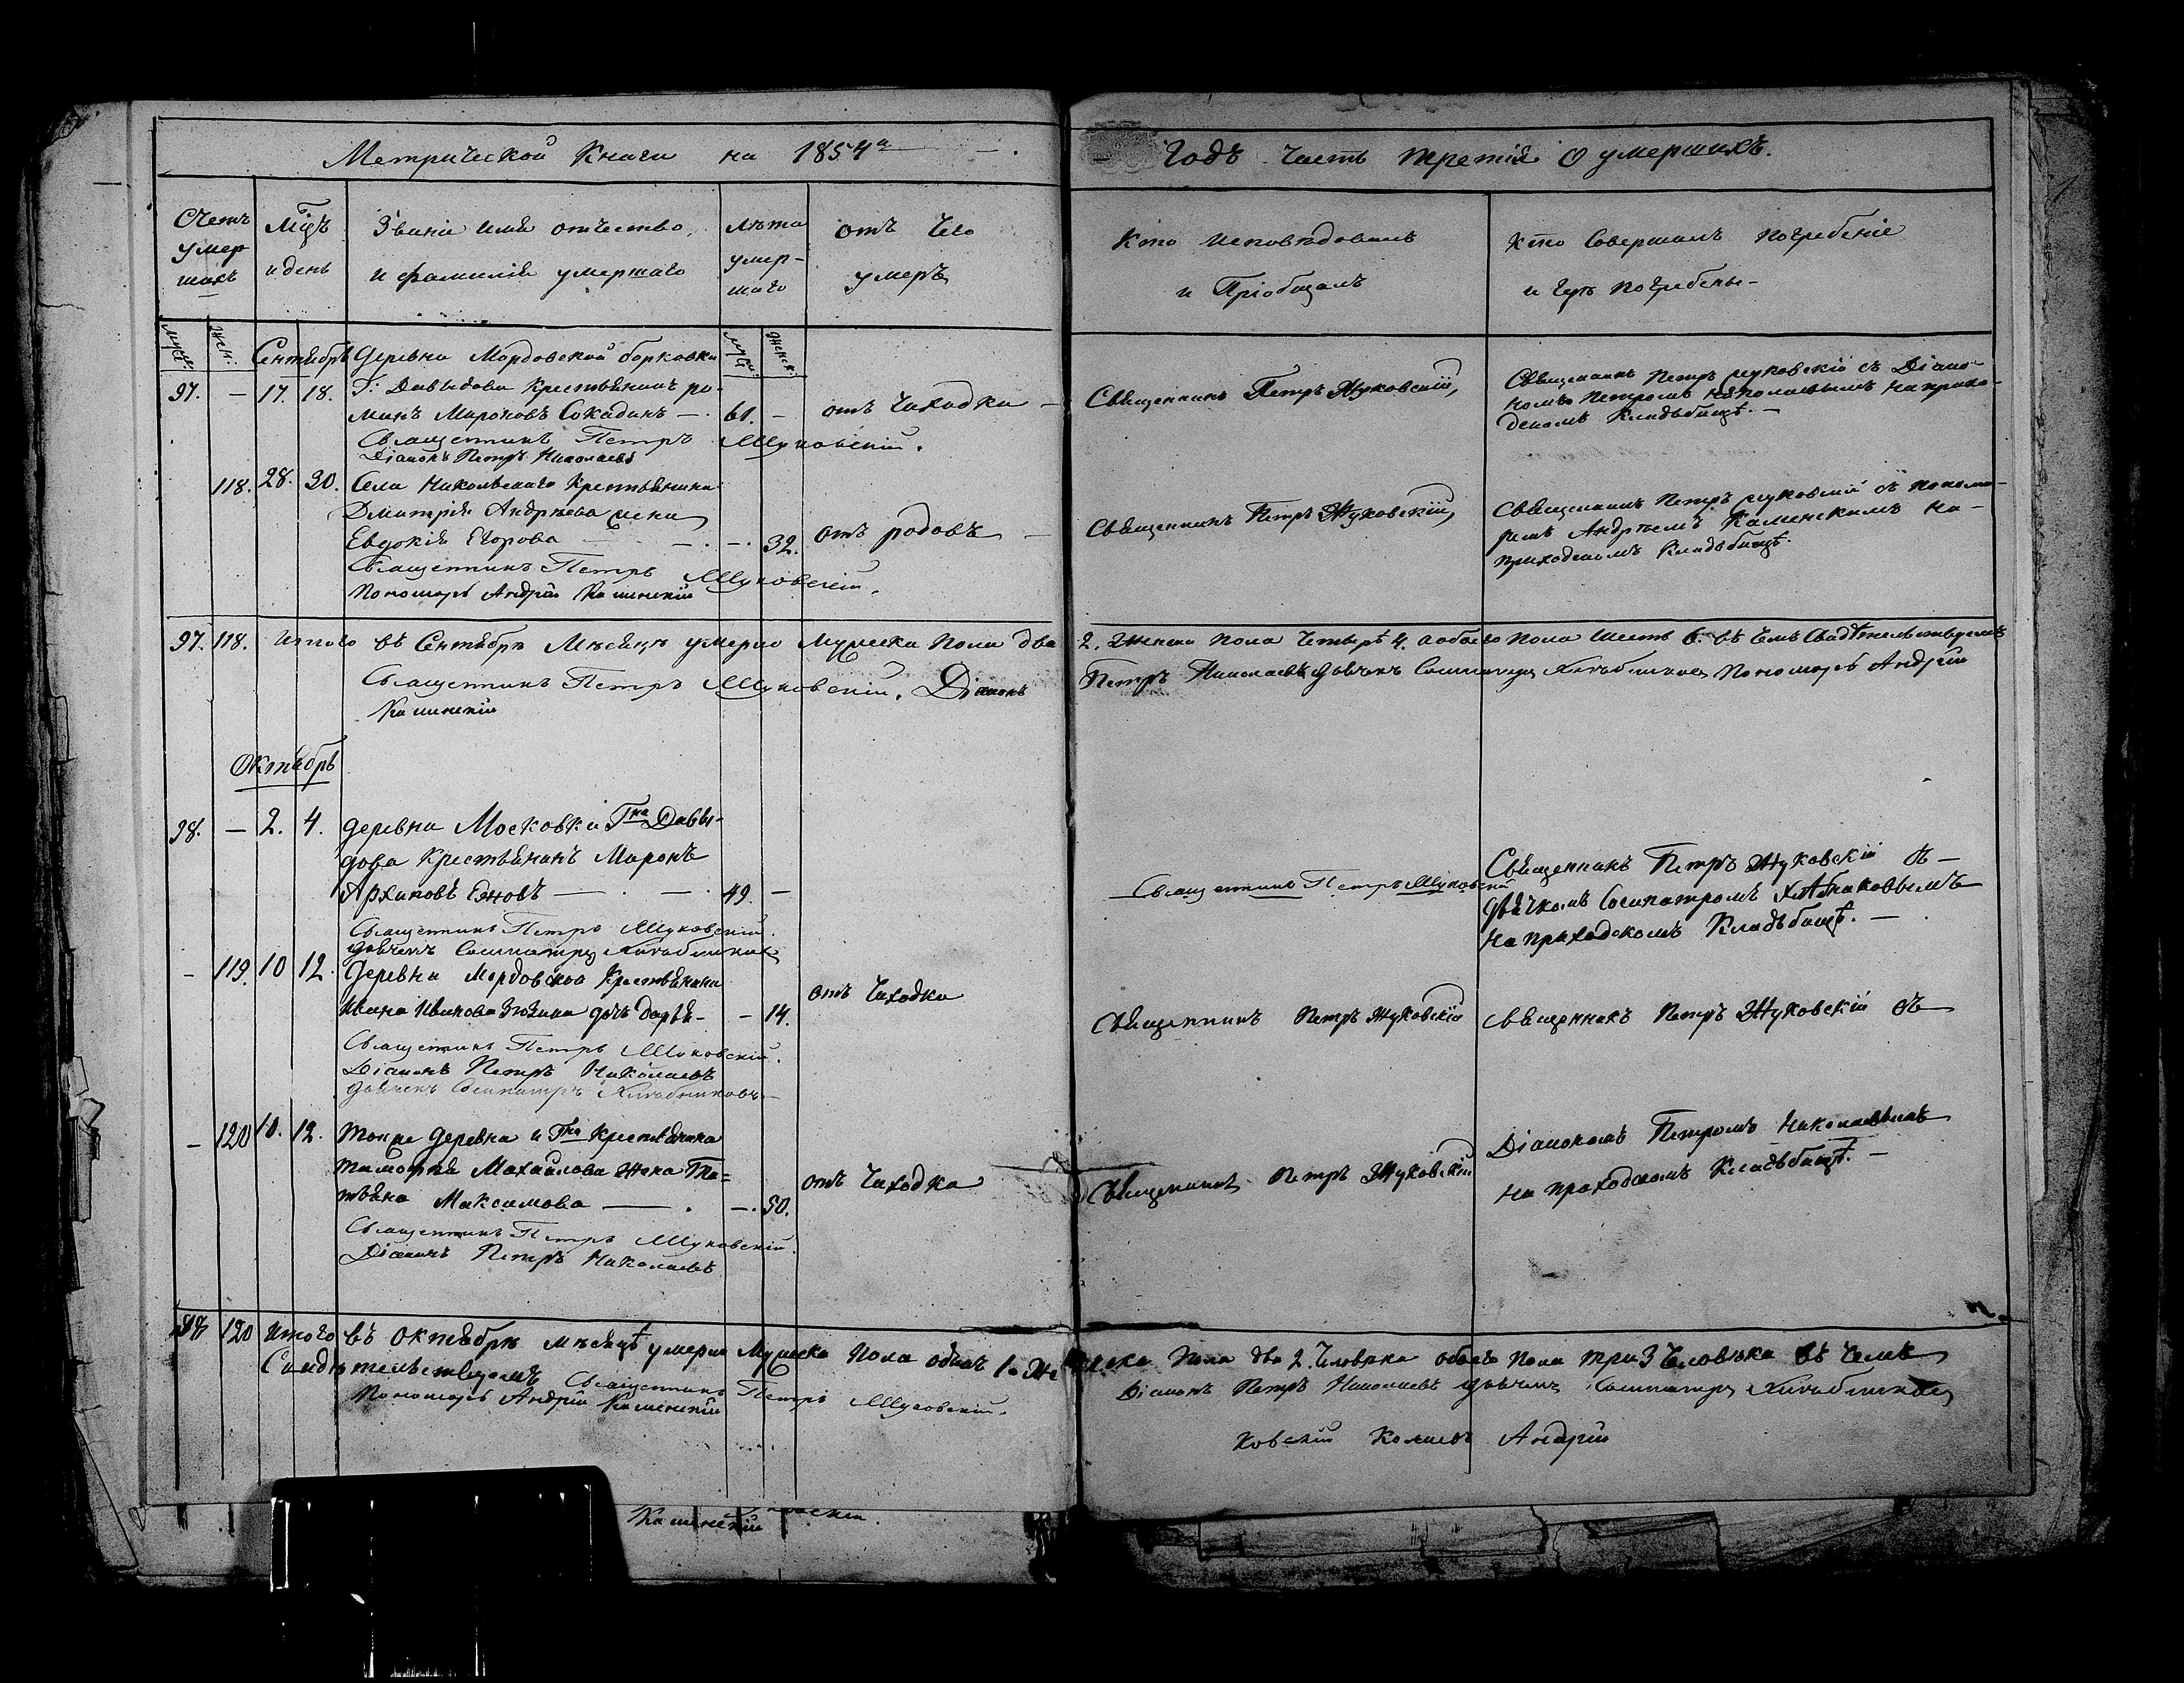 Метрической Книги на 1854й
Годъ часть третія о умершихъ.
Счетъ умер шихъ
Мцъ и день
Званіе имя отчество,
и фамилія умершаго
Лѣта умер- шаго
отъ чего
умеръ
Кто исповѣдовалъ
и Пріобщалъ
Кто Совершалъ погребеніе
и гдѣ погребены-
муж: жен: Сентябрь Деревни Мордовской борковки муж: женск:
97. — 17. 18. Г: Давыдова крестьянинъ ро-
манъ Мироновъ Сокадинъ —. 61. - отъ чаходки —
Священникъ Петръ Жуковскій.
Діаконъ Петръ Николаевъ
Священникъ Петръ Жуковскій,
Священникъ Петръ Жуковскій съ Діако-
номъ Петромъ Николаевымъ на прихо-
дскомъ Кладьбищѣ. —
118. 28. 30. Села Никольскаго Крестьянина
Дмитрія Андрѣева жена
Евдокія Егорова — . — . 32. отъ родовъ —
Священникъ Петръ Жуковскій.
Пономарь Андрей Каменскій
Священникъ Петръ Жуковскій,
Священникъ Петръ Жуковскій съ понома-
ремъ Андреемъ Каменскимъ на-
приходскомъ Кладьбищѣ.
97. 118. итого въ Сентябрѣ Мѣсяцѣ умерло мужеска пола два
2. Женска пола четыре 4. а обоего пола шесть 6. въ чемъ Свидѣтельствуемъ
Священникъ Петръ Жуковскій. Діаконъ
Петръ Николаевъ дьячекъ Сосипатръ Хлѣбников Пономарь Андрей
Каменскій
Октябрь
98. — 2. 4. деревни Московки Гна Давы-
дова Крестьянинъ Миронъ
Архиповъ Ежовъ — . — . 49. —
Священникъ Петръ Жуковскій.
дьячекъ Сосипатръ Хлѣбников
Священникъ Петръ Жуковскій
Священникъ Петръ Жуковскій съ —
дьячкомъ Сосипатромъ Хлѣбниковымъ
на приходскомъ Кладьбищѣ. —
- 119. 10 12. Деревни Мордовской Крестьянина
Ивана Иванова дочь Дарья- — 14. отъ чаходки
Священникъ Петръ Жуковскій.
Діаконъ Петръ Николаевъ
дьячекъ Сосипатръ Хлѣбниковъ —
Священникъ Петръ Жуковскій
священникъ Петръ Жуковскій съ
— 120 10. 12. тойже деревни и Гна крестьянина
тимофея Михайлова жена Та=
тьяна Максимова — . — . 50. отъ чаходки
Священникъ Петръ Жуковскій.
Діаконъ Петръ Николаевъ
Священникъ Петръ Жуковскій
Діакономъ Петромъ Николаевымъ
на приходскомъ Кладьбищѣ. —
98 120 итого въ Октябрѣ мѣсяцѣ умерло Мужеска пола одинъ 1. Же
нска пола два 2. человѣка обоего пола три 3 человѣка въ чемъ
Свидѣтельствуемъ Священникъ Петръ Жуковскій.
Діаконъ Петръ Николаевъ дьячекъ Сосипатръ Хлѣбников
Пономарь Андрей Каменскій
Андрей
Каменскій